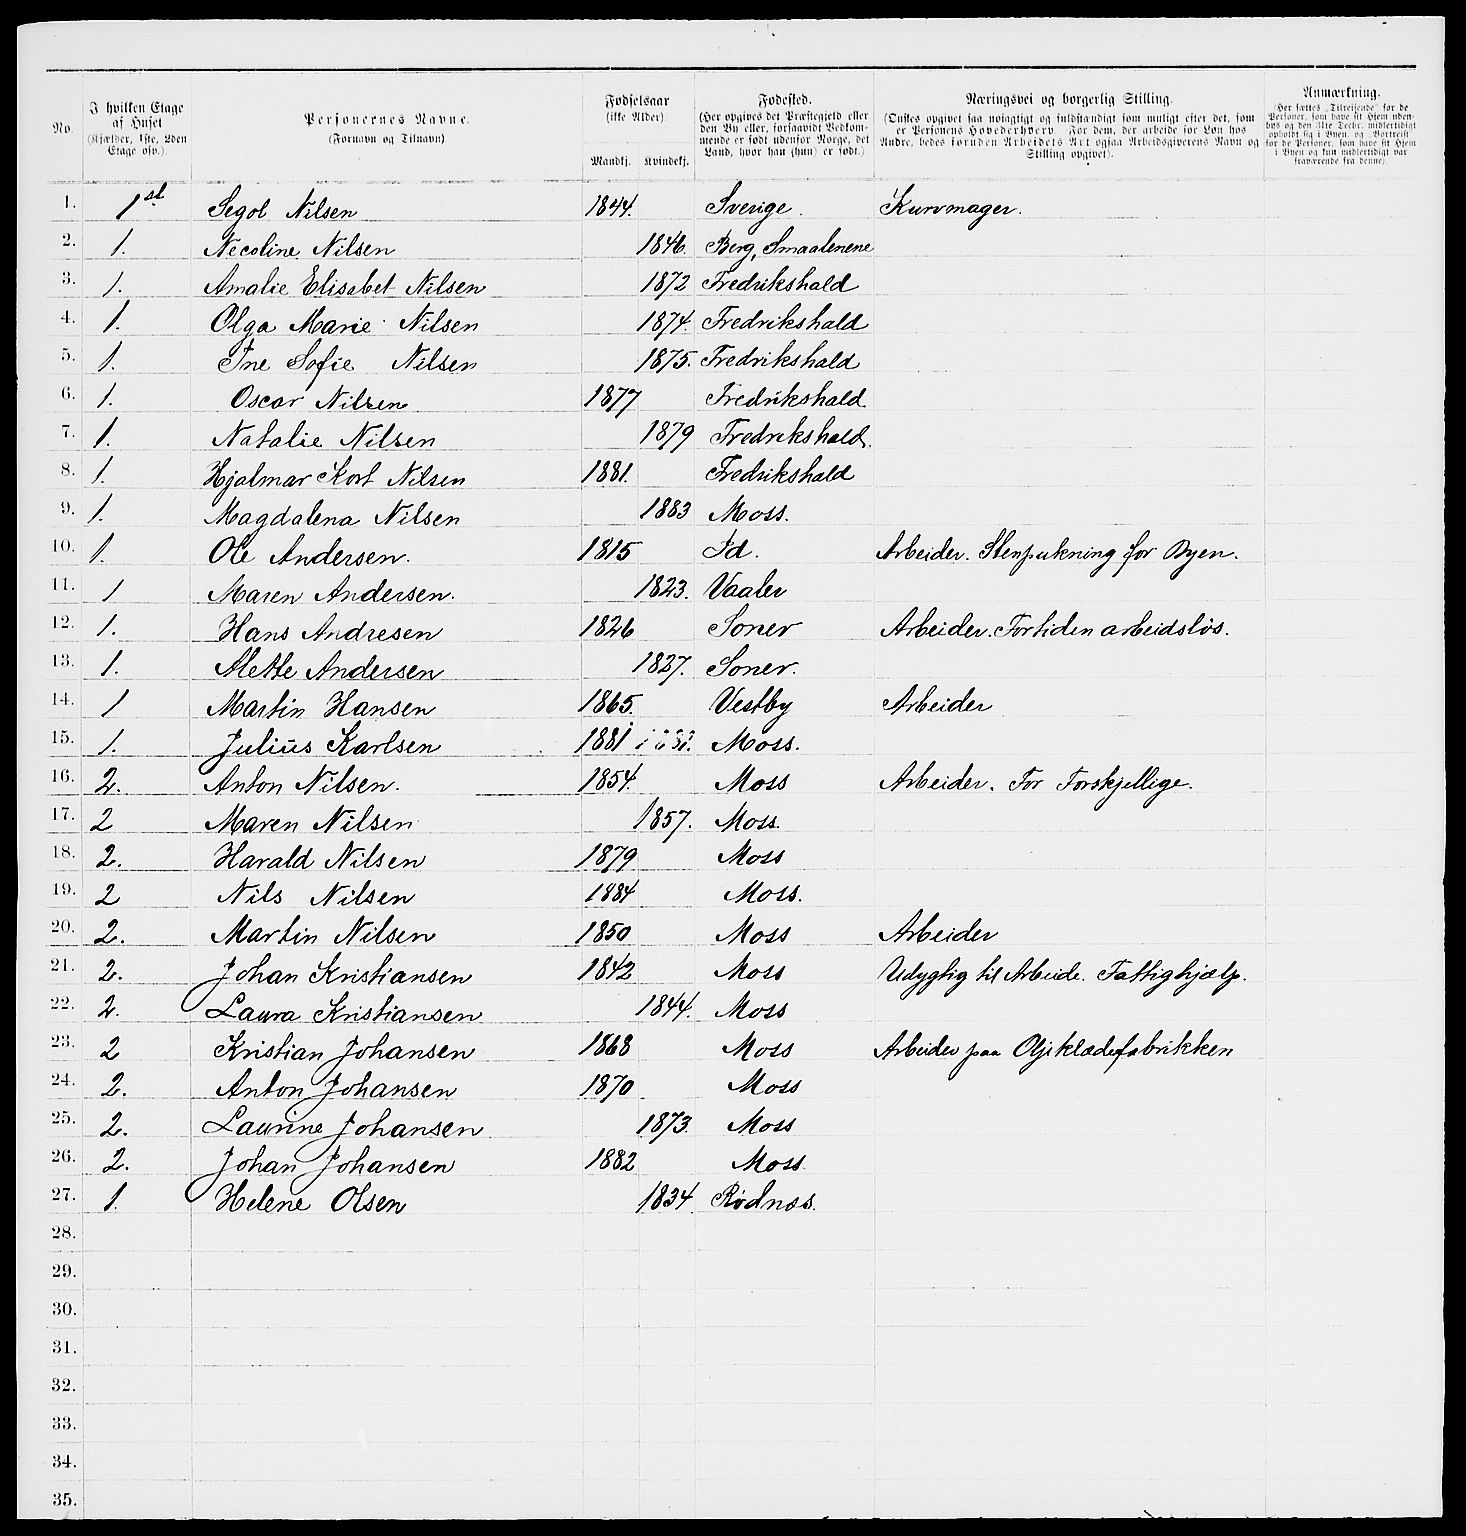 No.
I hvilken Etage af Huset (Kjælder, 1ste, 2den Etage osv.).
Personernes Navne. (Fornavn og Tilnavn)
Fødselsaar (ikke Alder). Mandkj. Kvindekj.
Fødested. (Her opgives det Præstegjeld eller den By eller, forsaavidt Vedkommende er født udenfor Norge, det Land, hvor han (hun) er født.)
Næringsvei og borgerlig Stilling. (Ønskes opgivet saa nøiagtigt og fuldstændigt som muligt efter det, som er Personens Hovederhverv. For dem, der arbeide for Løn hos Andre, bedes foruden Arbeidets Art ogsaa Arbeidsgiverens Navn og Stilling opgivet).
Anmærkning. (Her sættes „Tilreisende" for de Personer, som have sit Hjem udenbys og den 31te Decbr. midlertidigt opholdt sig i Byen, og „Bortreist" for de Personer, som have sit Hjem i Byen og kun midlertidigt var fraværende fra denne).
1. 1st Segol Nilsen 1844. Sverige. Kurvmager.
2. 1. Necoline Nilsen 1846. Berg, Smaalenene
3. 1. Amalie Elisabet Nilsen 1872 Fredrikshald
4. 1. Olga Marie Nilsen 1874. Fredrikshald
5. 1. Ine Sofie Nilsen 1875. Fredrikshald
6. 1. Oscar Nilsen 1877 Fredrikshald
7. 1. Natalie Nilsen 1879 Fredrikshald.
8. 1. Hjalmar Kort Nilsen 1881. Fredrikshald
9. 1. Magdalena Nilsen 1883 Moss.
10. 1. Ole Andersen. 1815 Id. Arbeider. Stenpukning for Byen.
11. 1 Maren Andersen. 1823. Vaaler
12. 1. Hans Andresen 1826 Soner Arbeider. Fortiden arbeidsløs.
13. 1. Mette Andersen 1827. Soner.
14. 1 Martin Hansen 1865. Vestby Arbeider
15. 1. Julius Karlsen 1881 Moss.
16. 2. Anton Nilsen. 1854. Moss Arbeider. For Forskjellige.
17. 2 Maren Nilsen 1857. Moss.
18. 2. Harald Nilsen 1879 Moss
19. 2 Nils Nilsen 1884 Moss.
20. 2. Martin Nilsen 1850 Moss Arbeider
21. 2. Johan Kristiansen 1842 Moss Udygtig til Arbeide. Fattighjælp.
22. 2. Laura Kristiansen 1844. Moss
23. 2 Kristian Johansen 1868 Moss Arbeider paa Oljeklædefabrikken
24. 2. Anton Johansen 1870 Moss
25. 2. Laurine Johansen 1873. Moss
26. 2. Johan Johansen 1882 Moss.
27. 1. Helene Olsen 1834 Rødnæs.
28.
29.
30.
31.
32.
33.
34.
35.